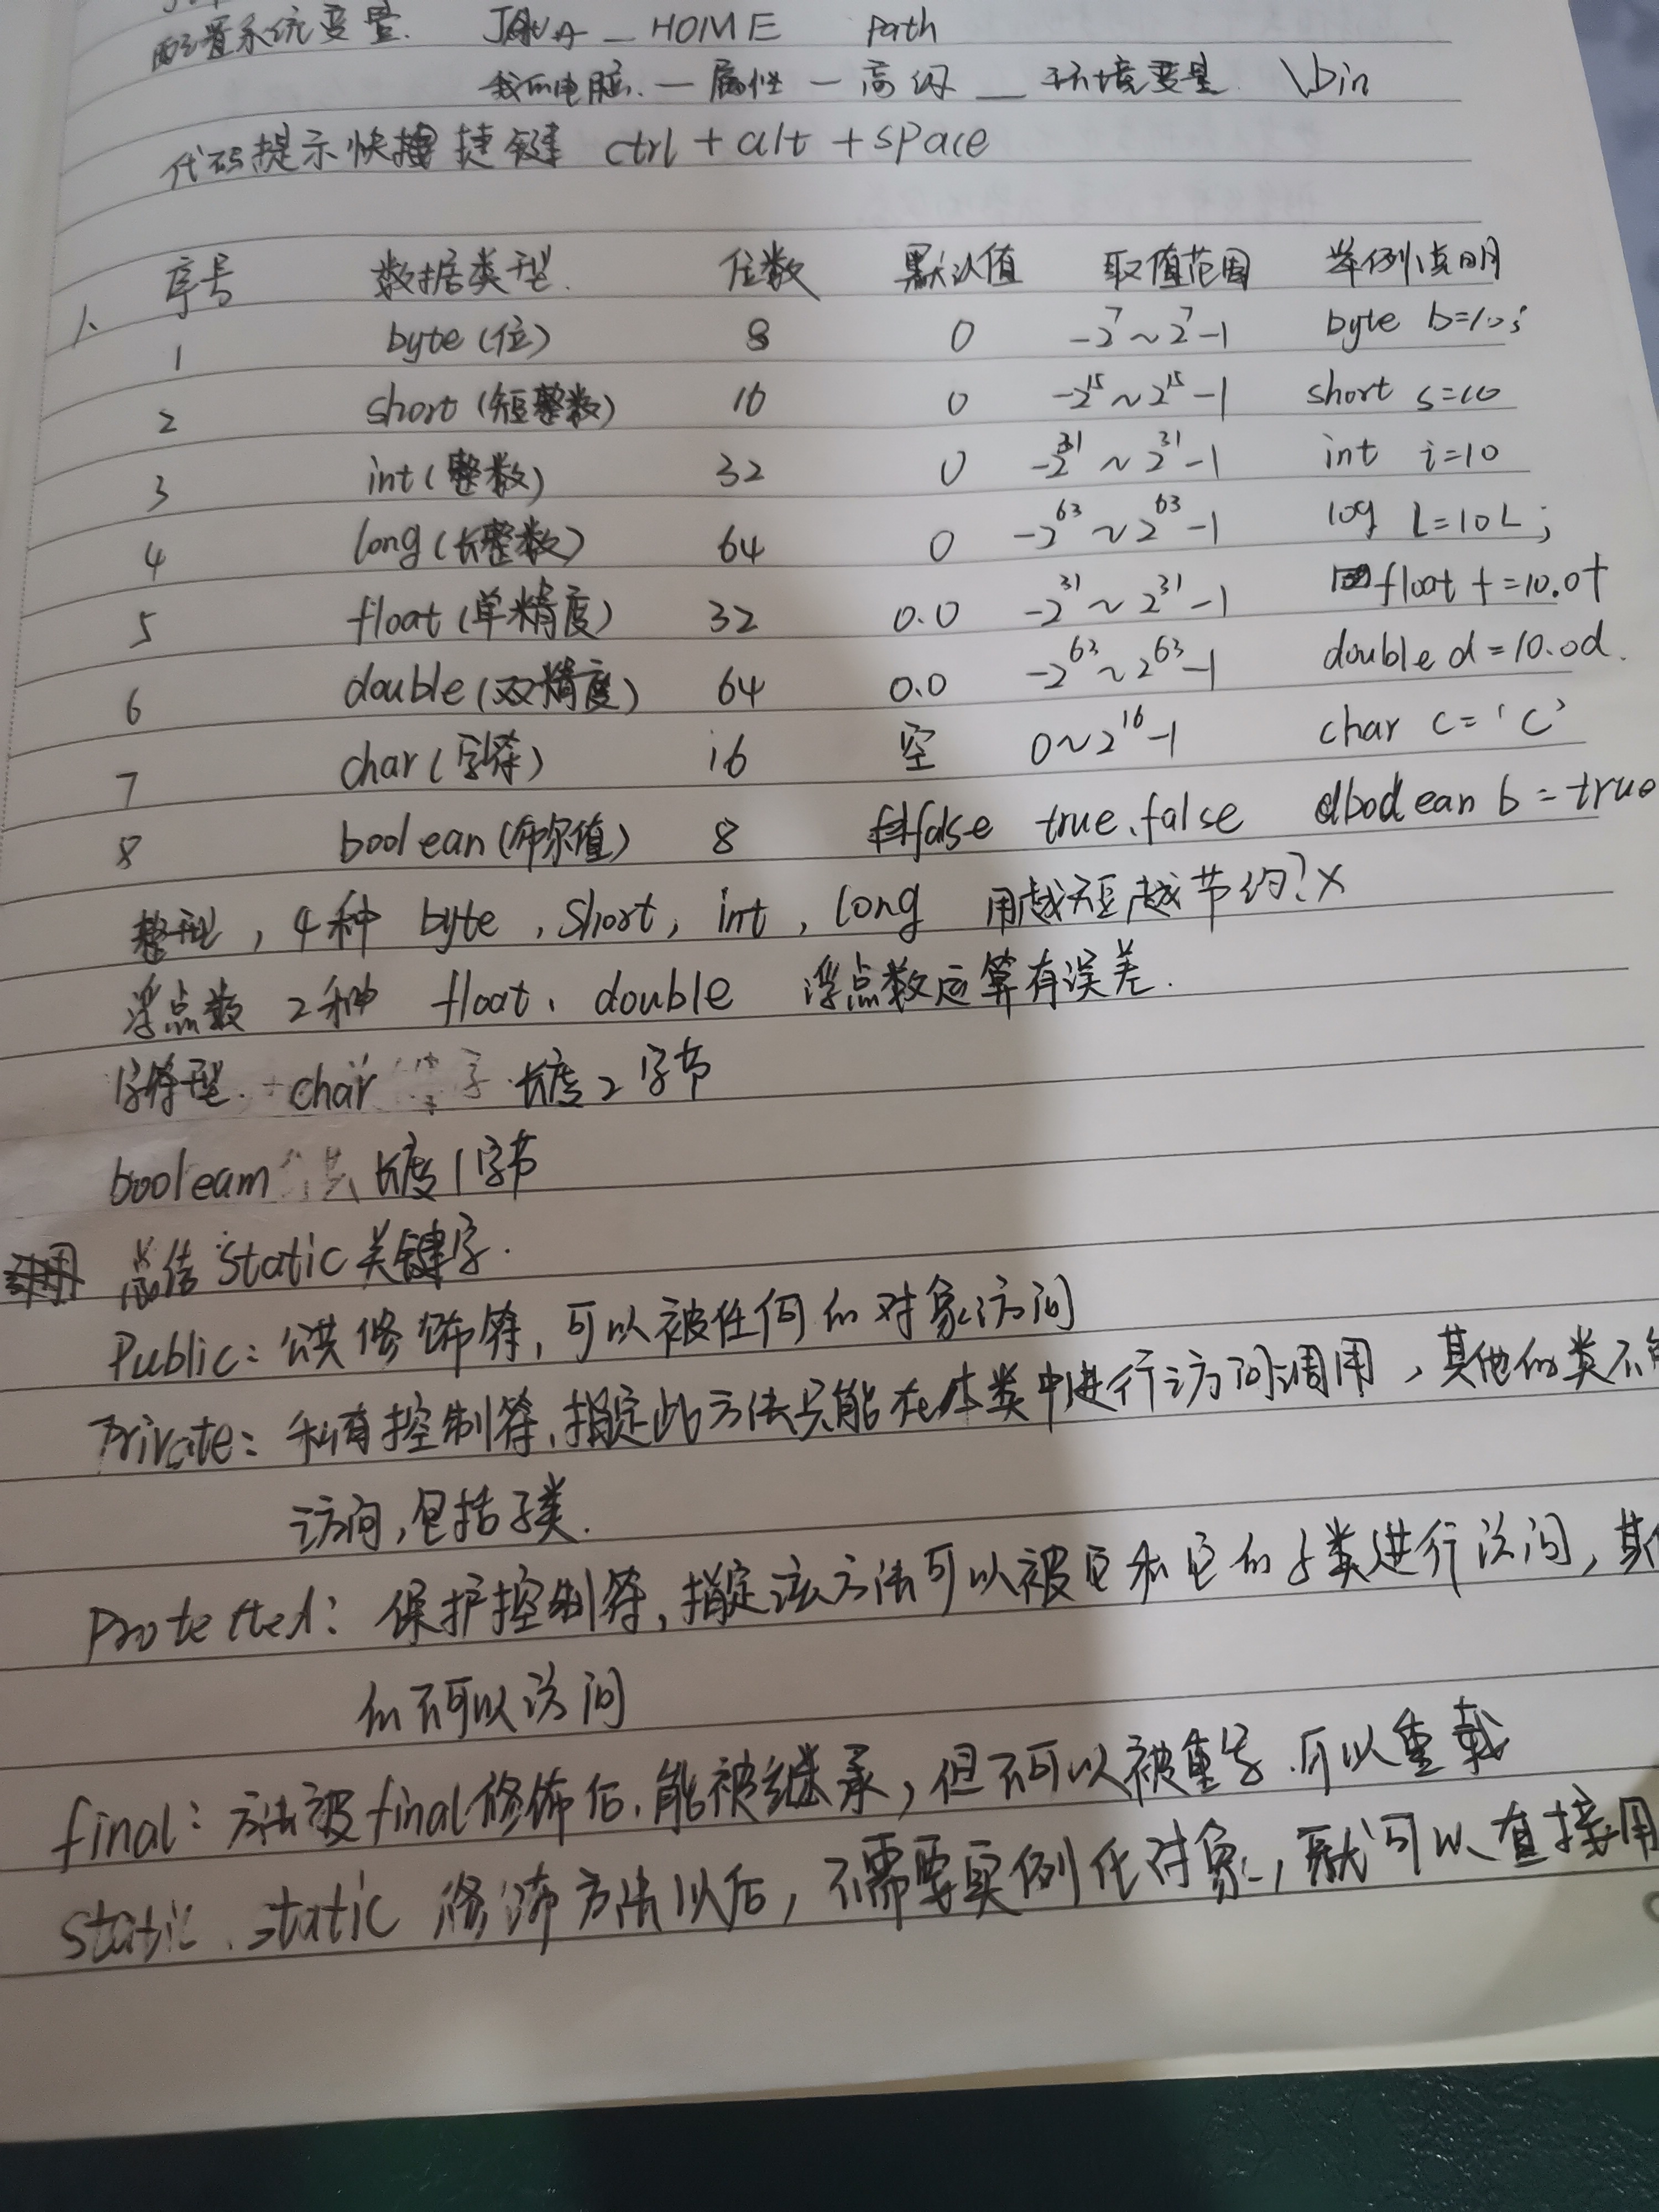 配置系统变量. JAVA_HOME Path
我的电脑.—属性—高级—环境变量. \bin
代码提示快捷键 ctrl+alt+space
序号 数据类型. 位数 默认值 取值范围 举例说明
1、
1 byte(位) 8 0 -2^7~2^7-1 byte b=10;
2 short(短整数) 16 0 -2^15~2^15-1 short s=10
3 int(整数) 32 0 -2^31~2^31-1 int i=10
4 long(长整数) 64 0 -2^63~2^63-1 log L=10L;
5 float(单精度) 32 0.0 -2^31~2^31-1 float f=10.0f
6 double(双精度) 64 0.0 -2^63~2^63-1 double d=10.0d.
7 char(字符) 16 空 0~2^16-1 char c='c'
8 boolean(布尔值) 8 false true、false boolean b=true
整型,4种 byte,short,int,long 用越短越节约?×
浮点数 2种 float、double 浮点数运算有误差.
字符型. char 长度2字节
booleam 长度1字节
总结static关键字.
Public:公共修饰符,可以被任何的对象访问
Private:私有控制符,指定此方法只能在本类中进行访问调用,其他的类不能
访问,包括子类.
Protetted:保护控制符,指定该方法可以被它和它的子类进行访问,其他
的不可以访问
final:方法被final修饰后,能被继承,但不可以被重写.可以重载
static.static修饰方法以后,不需要实例化对象,就可以直接用